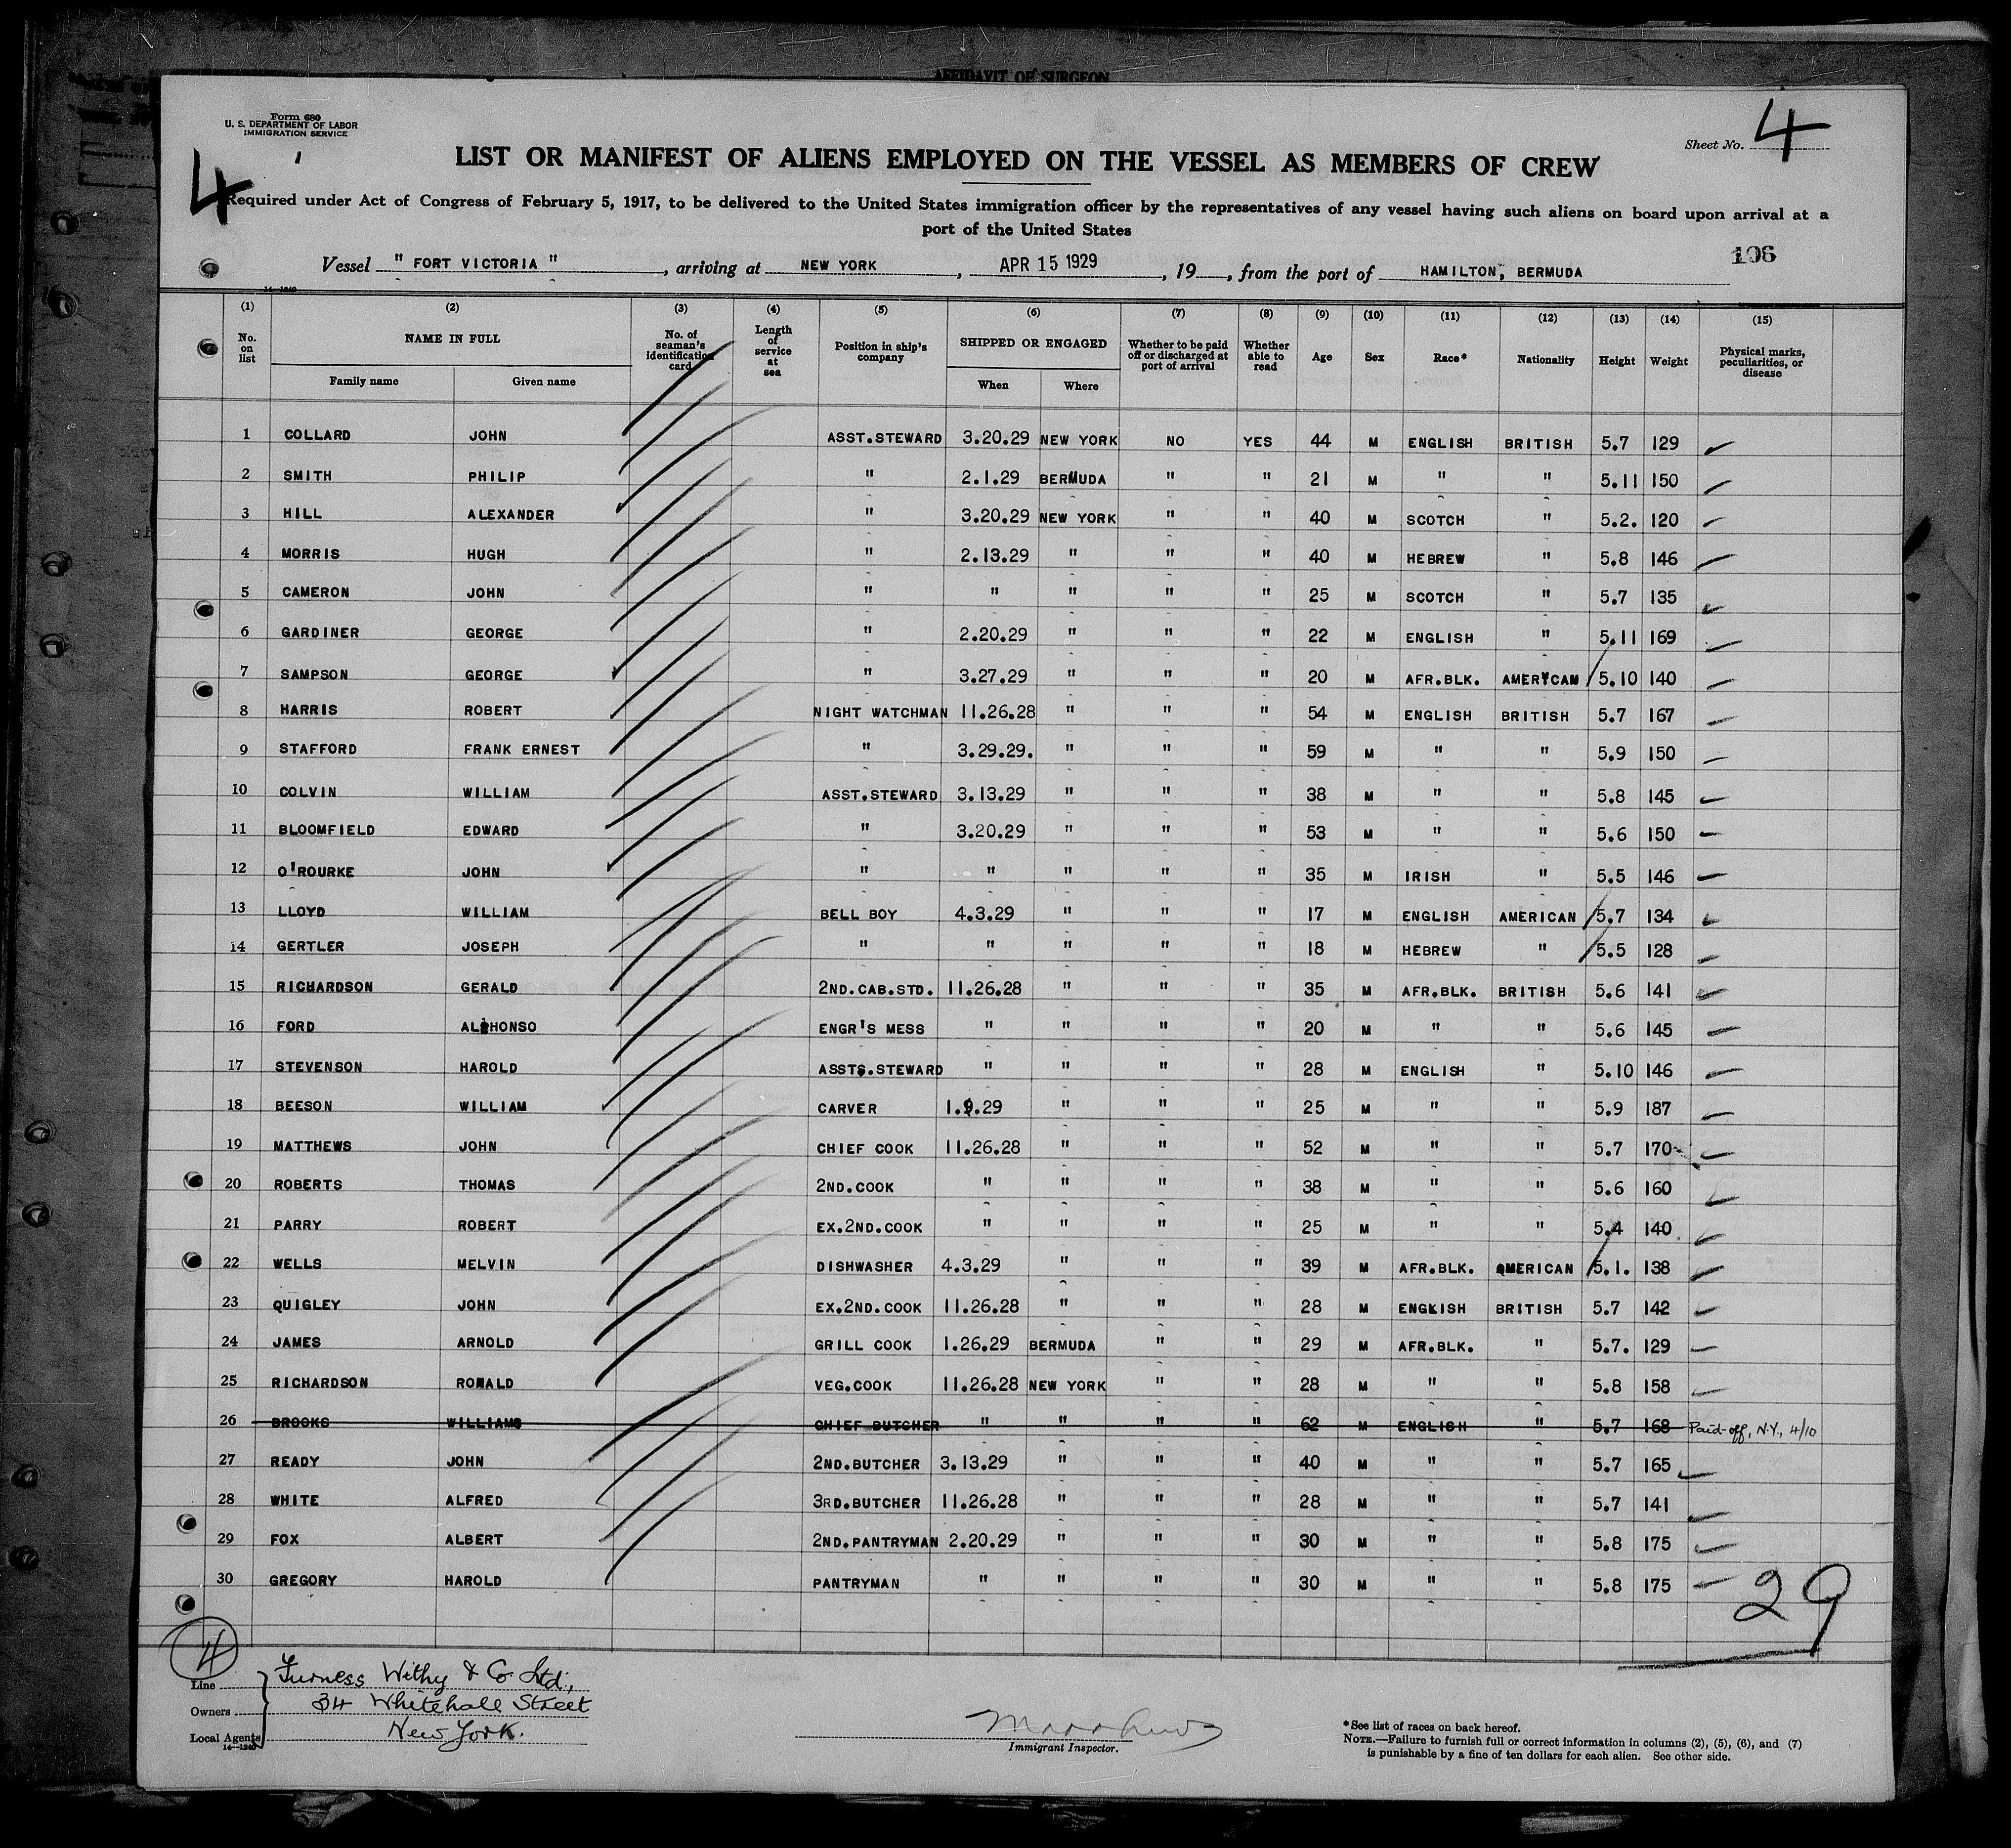 AFFIDAVIT OF SURGEON
Form 680
U. S. DEPARTMENT OF LABOR
IMMIGRATION SERVICE
4
Sheet No. 4
LIST OR MANIFEST OF ALIENS EMPLOYED ON THE VESSEL AS MEMBERS OF CREW
Required under Act of Congress of February 5, 1917, to be delivered to the United States immigration officer by the representatives of any vessel having such aliens on board upon arrival at a
port of the United States
106
Vessel " FORT VICTORIA " , arriving at NEW YORK , APR 15 1929 , 19 , from the port of HAMILTON, BERMUDA
14—1240
(1) (2) (3) (4) (5) (6) (7) (8) (9) (10) (11) (12) (13) (14) (15)
No. on list NAME IN FULL Family name Given name No. of seaman's identification card Length of service at sea Position in ship's company SHIPPED OR ENGAGED When Where Whether to be paid off or discharged at port of arrival Whether able to read Age Sex Race* Nationality Height Weight Physical marks, peculiarities, or disease
1 COLLARD JOHN ASST.STEWARD 3.20.29 NEW YORK NO YES 44 M ENGLISH BRITISH 5.7 129
2 SMITH PHILIP " 2.1.29 BERMUDA " " 21 M " " 5.11 150
3 HILL ALEXANDER " 3.20.29 NEW YORK " " 40 M SCOTCH " 5.2. 120
4 MORRIS HUGH " 2.13.29 " " " 40 M HEBREW " 5.8 146
5 CAMERON JOHN " " " " " 25 M SCOTCH " 5.7 135
6 GARDINER GEORGE " 2.20.29 " " " 22 M ENGLISH " 5.11 169
7 SAMPSON GEORGE " 3.27.29 " " " 20 M AFR.BLK. AMERICAN 5.10 140
8 HARRIS ROBERT NIGHT WATCHMAN 11.26.28 " " " 54 M ENGLISH BRITISH 5.7 167
9 STAFFORD FRANK ERNEST " 3.29.29. " " " 59 M " " 5.9 150
10 COLVIN WILLIAM ASST.STEWARD 3.13.29 " " " 38 M " " 5.8 145
11 BLOOMFIELD EDWARD " 3.20.29 " " " 53 M " " 5.6 150
12 O'ROURKE JOHN " " " " " 35 M IRISH " 5.5 146
13 LLOYD WILLIAM BELL BOY 4.3.29 " " " 17 M ENGLISH AMERICAN 5.7 134
14 GERTLER JOSEPH " " " " " 18 M HEBREW " 5.5 128
15 RICHARDSON GERALD 2ND.CAB.STD. 11.26.28 " " " 35 M AFR.BLK. BRITISH 5.6 141
16 FORD ALPHONSO ENGR'S MESS " " " " 20 M " " 5.6 145
17 STEVENSON HAROLD ASSTS.STEWARD " " " " 28 M ENGLISH " 5.10 146
18 BEESON WILLIAM CARVER 1.9.29 " " " 25 M " " 5.9 187
19 MATTHEWS JOHN CHIEF COOK 11.26.28 " " " 52 M " " 5.7 170
20 ROBERTS THOMAS 2ND.COOK " " " " 38 M " " 5.6 160
21 PARRY ROBERT EX.2ND.COOK " " " " 25 M " " 5.4 140
22 WELLS MELVIN DISHWASHER 4.3.29 " " " 39 M AFR.BLK. AMERICAN 5.1. 138
23 QUIGLEY JOHN EX.2ND.COOK 11.26.28 " " " 28 M ENGLISH BRITISH 5.7 142
24 JAMES ARNOLD GRILL COOK 1.26.29 BERMUDA " " 29 M AFR.BLK. " 5.7. 129
25 RICHARDSON RONALD VEG.COOK 11.26.28 NEW YORK " " 28 M " " 5.8 158
26 BROOKS WILLIAMS CHIEF BUTCHER " " " " 62 M ENGLISH " 5.7 168 Paid-off, N.Y., 4/10
27 READY JOHN 2ND.BUTCHER 3.13.29 " " " 40 M " " 5.7 165
28 WHITE ALFRED 3RD.BUTCHER 11.26.28 " " " 28 M " " 5.7 141
29 FOX ALBERT 2ND.PANTRYMAN 2.20.29 " " " 30 M " " 5.8 175
30 GREGORY HAROLD PANTRYMAN " " " " 30 M " " 5.8 175
29
4
Line Furness Withy & Co Ltd.,
Owners 34 Whitehall Street
Local Agents New York.
14—1240
Immigrant Inspector.
*See list of races on back hereof.
NOTE.—Failure to furnish full or correct information in columns (2), (5), (6), and (7)
is punishable by a fine of ten dollars for each alien. See other side.